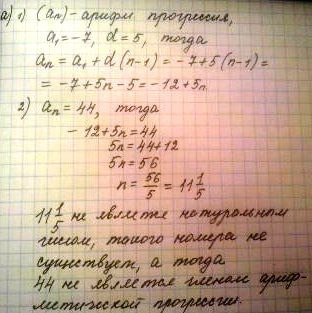 а) 1) (aₙ) - арифм прогрессия,
a₁ = -7, d = 5, тогда
aₙ = a₁ + d(n-1) = -7 + 5(n-1) =
= -7 + 5n - 5 = -12 + 5n.
2) aₙ = 44, тогда
-12 + 5n = 44
5n = 44 + 12
5n = 56
n = 56/5 = 11 1/5
11 1/5 не является натуральным
числом, такого номера не
существует, а тогда
44 не является членом ариф-
метической прогрессии.